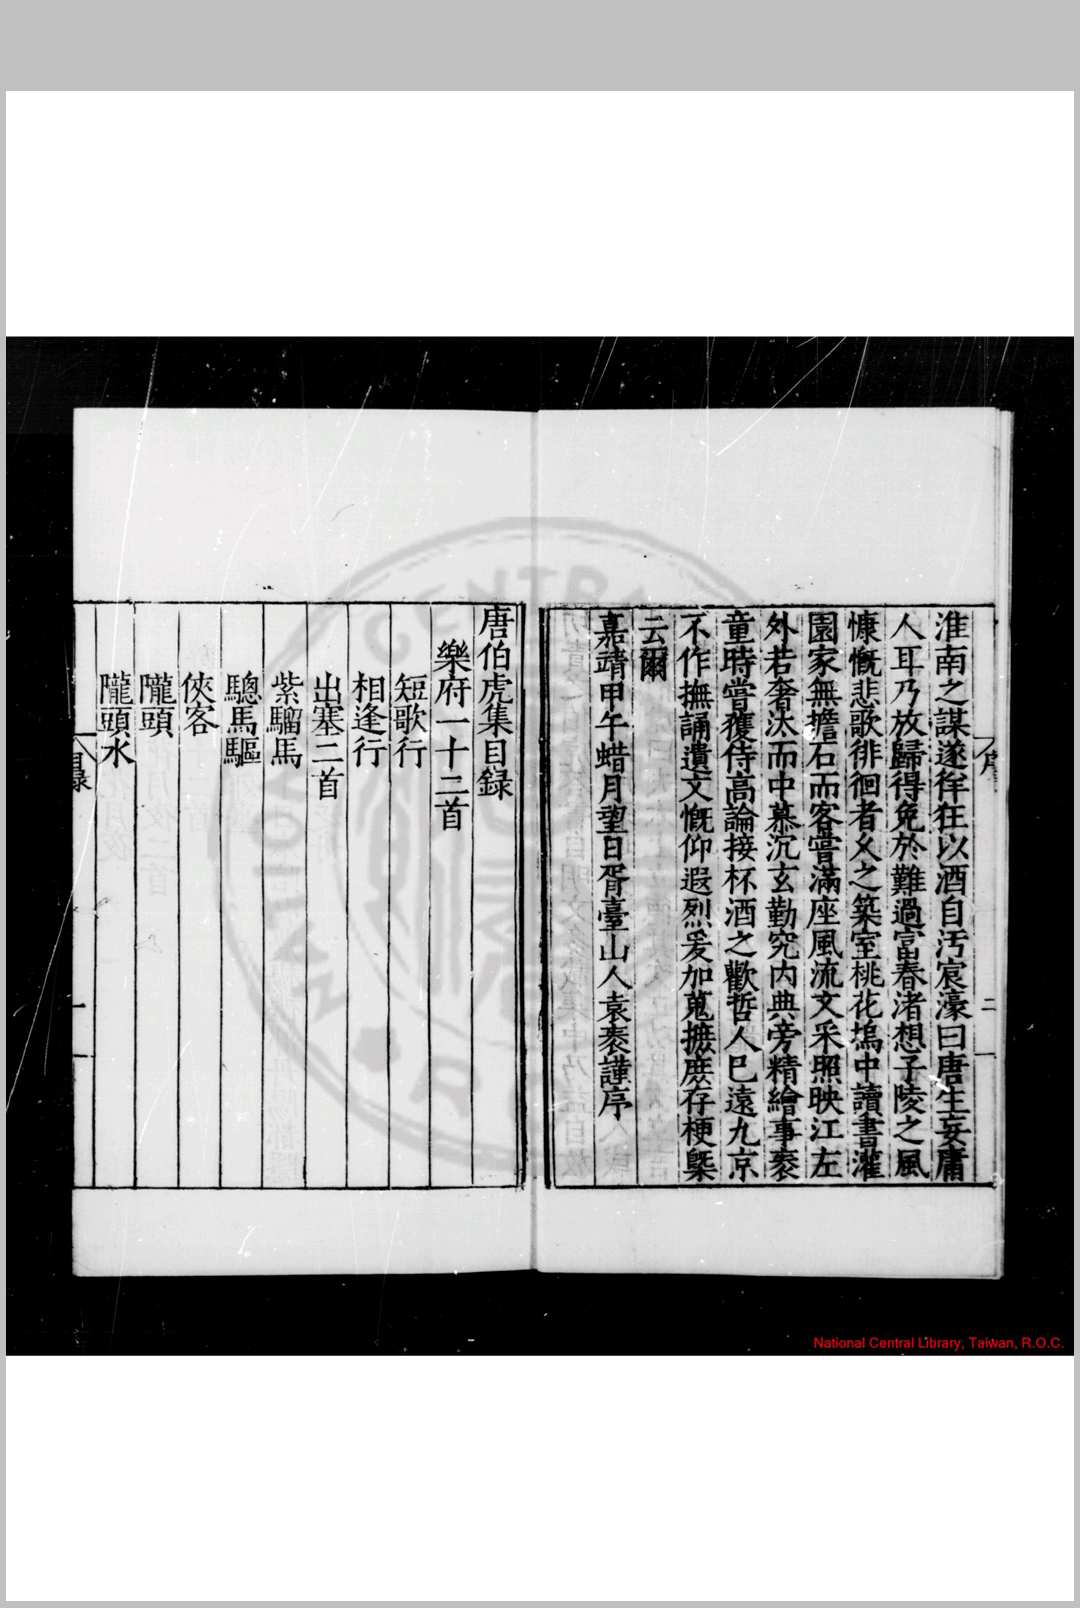 淮南之謀遂佯狂以酒自汚宸濠曰唐生妄庸
人耳乃放歸得免於難過富春渚想子陵之風
慷慨悲歌徘徊者乆之築室桃花塢中讀書灌
園家無擔石而客嘗滿座風流文采照映江左
外若奢汰而中慕沉玄勤究内典旁精繪事袠
童時嘗獲侍高論接杯酒之歡哲人巳遠九京
不作撫誦遺文慨仰遐烈爰加蒐摭庻存梗槩
云爾
嘉靖甲午蜡月望日胥臺山人袁袠謹序
序
二
唐伯虎集目録
樂府一十二首
短歌行
相逢行
出塞二首
紫騮馬
驄馬驅
俠客
隴頭
隴頭水
目録
一
National Central Library, Taiwan, R.O.C.